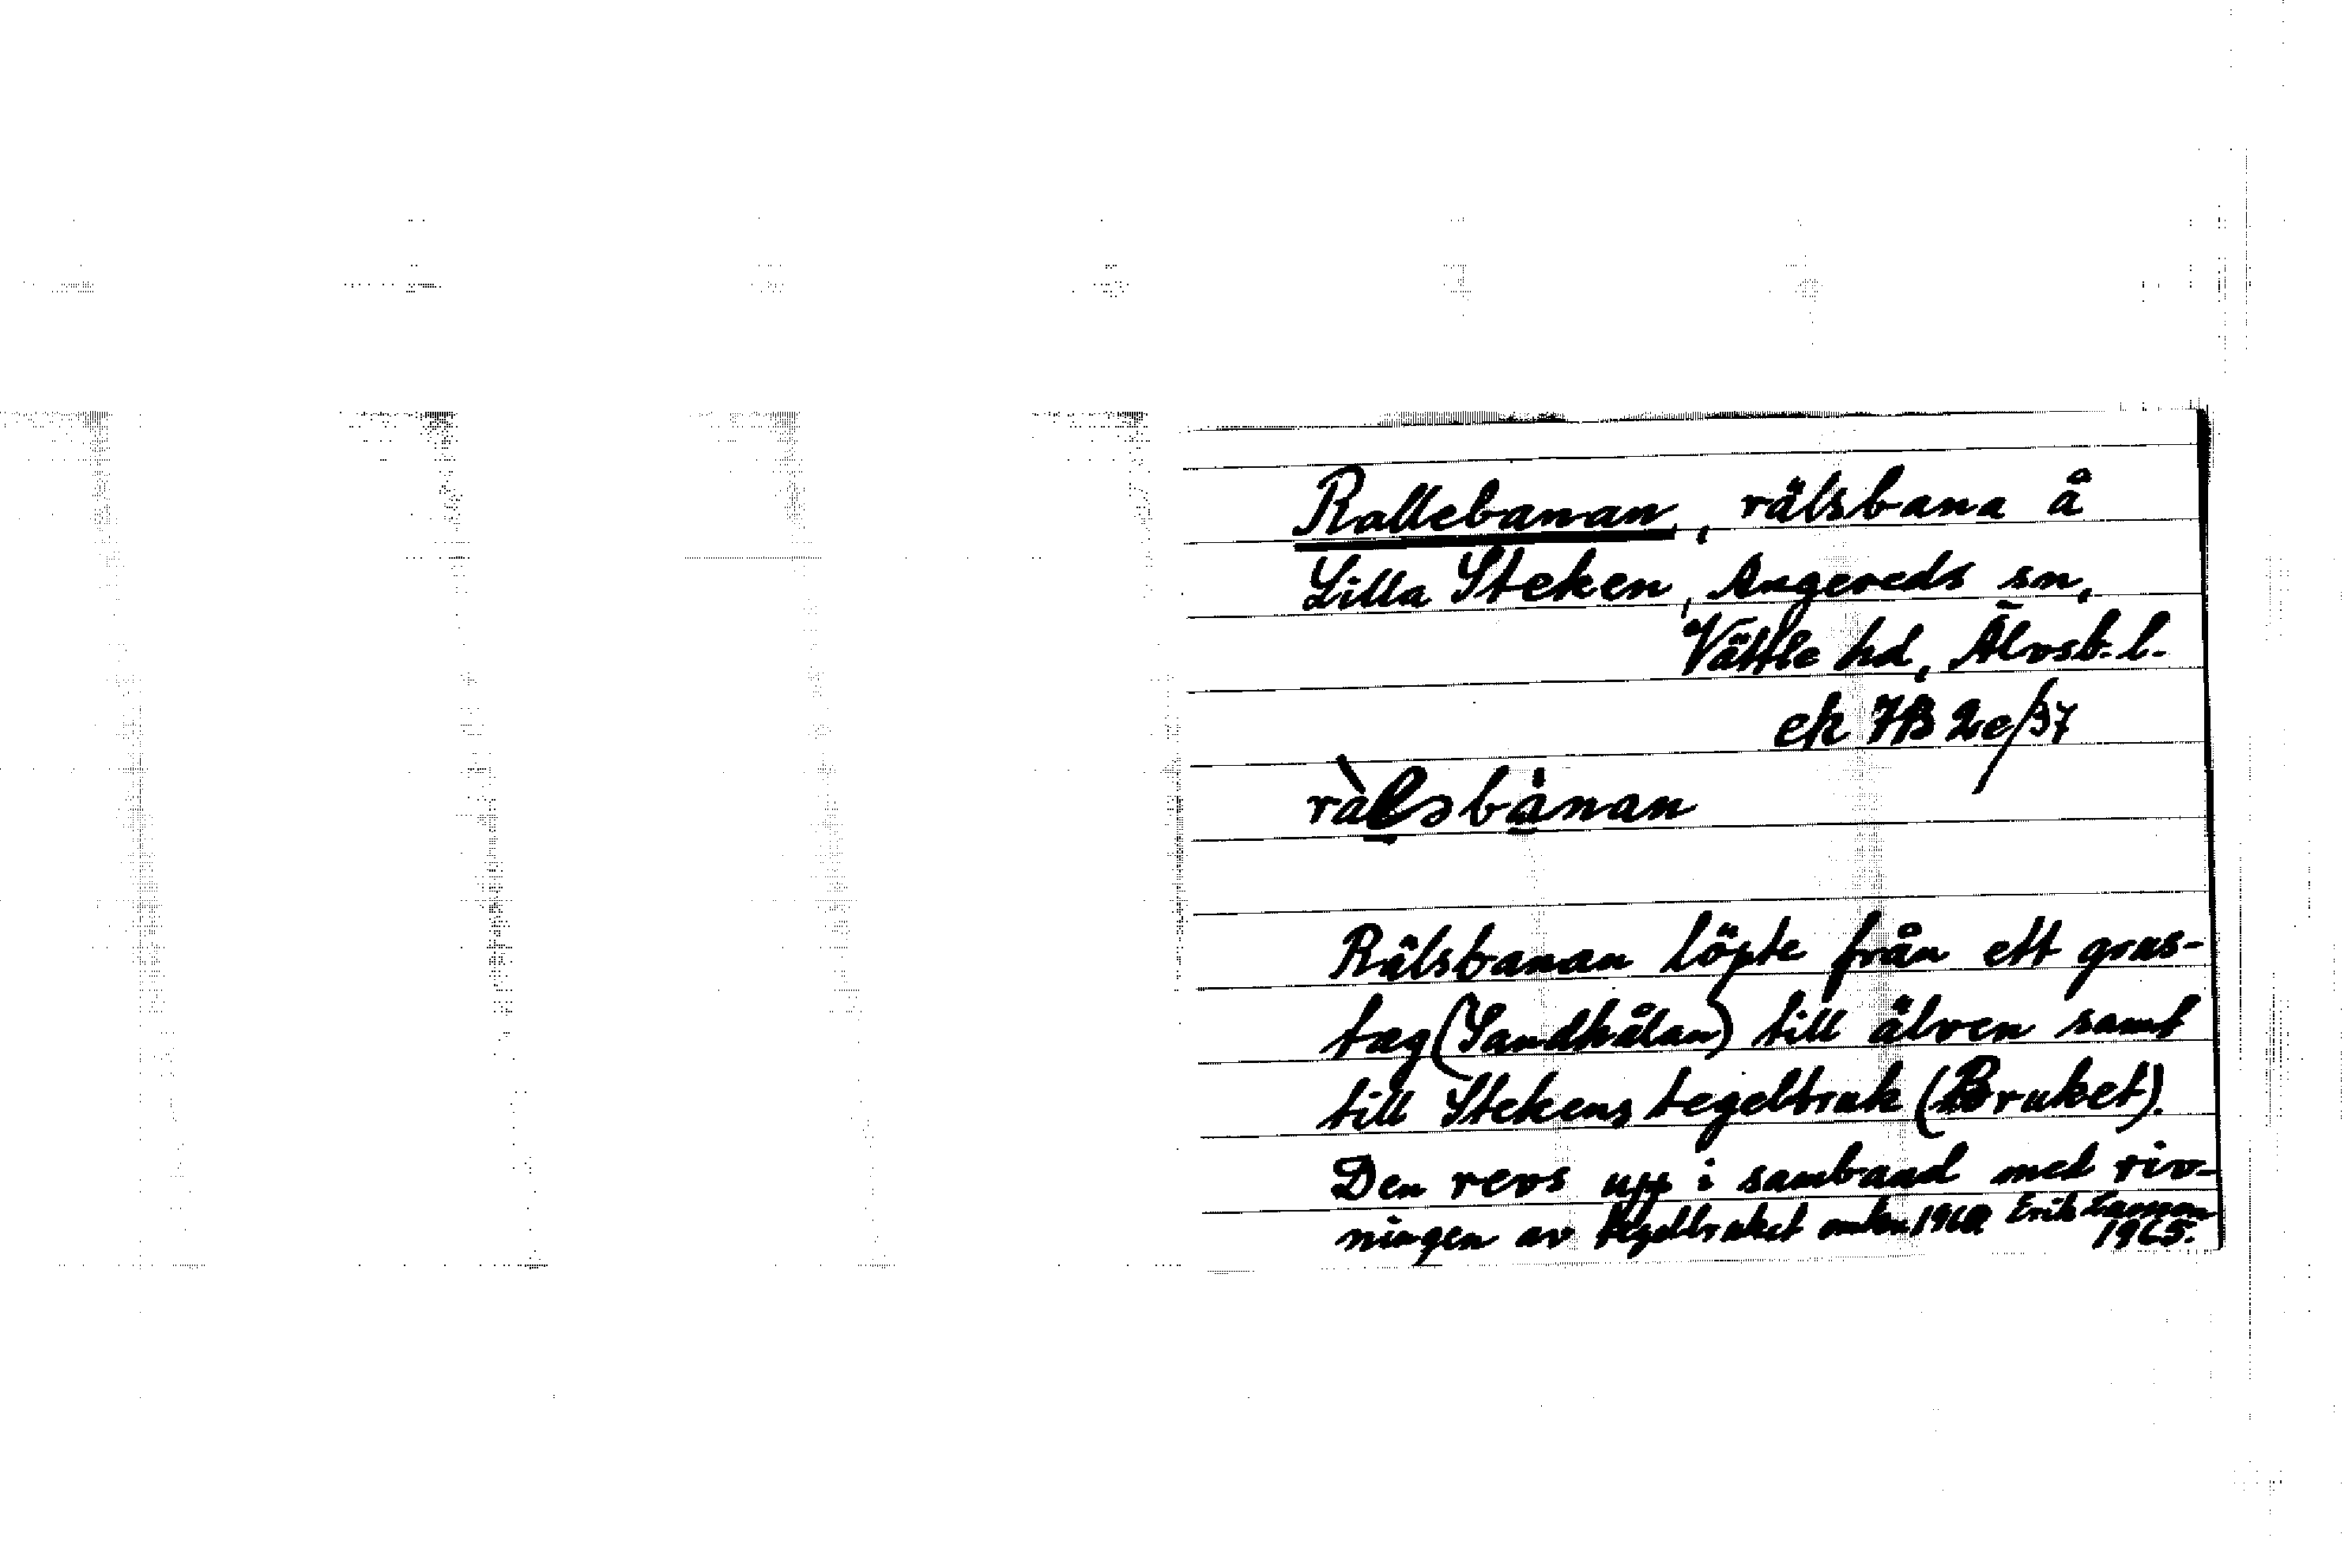 Rallebanan, rälsbana å
Lilla Steken, Angereds sn,
Vättle hd, Älvsb. l.
ek 7B 2e/97
ràlsbånan
Rälsbanan löpte från ett grus-
tag (Sandhålan) till älven samt
till Stekens tegelbruk (Bruket).
Den revs upp i samband med riv-
ningen av tegelbruket omkr 1960. Erik
1965.